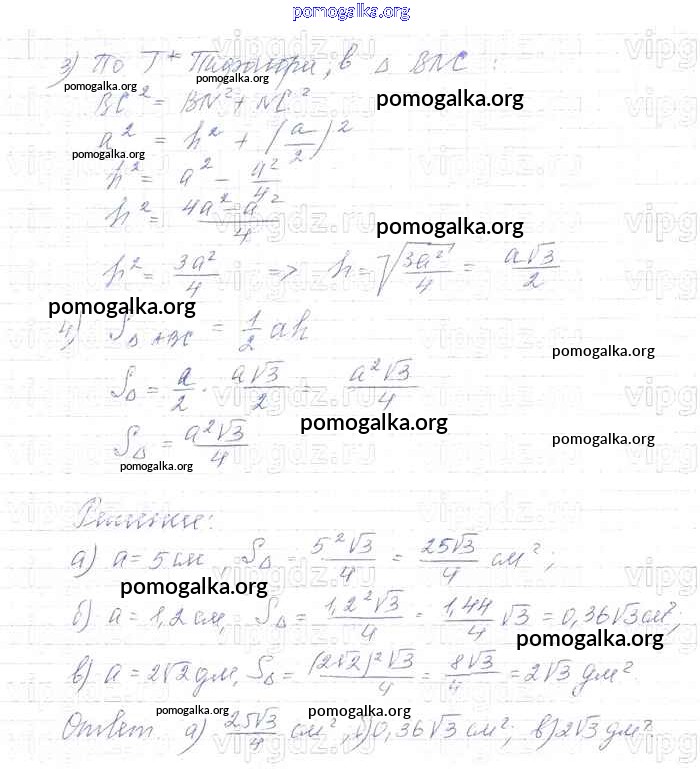 pomogalka.org
3) По Т* Пифагора, в Δ BNC :
pomogalka.org
BC² = BN² + NC²
pomogalka.org
a² = h² + (a/2)²
pomogalka.org
h² = a² - a²/4
h² = (4a² - a²)/4
pomogalka.org
h² = 3a²/4 => h = √(3a²/4) = a√3/2
pomogalka.org
4) S Δ ABC = 1/2 ah
pomogalka.org
SΔ = a/2 · a√3/2 = a²√3/4
pomogalka.org
SΔ = a²√3/4
pomogalka.org
pomogalka.org
Решение:
а) a = 5 см, SΔ = 5²√3/4 = 25√3/4 см²;
pomogalka.org
б) a = 1,2 см, SΔ = 1,2²√3/4 = 1,44/4 √3 = 0,36√3 см²;
pomogalka.org
в) a = 2√2 дм, SΔ = (2√2)²√3/4 = 8√3/4 = 2√3 дм².
pomogalka.org pomogalka.org
Ответ. а) 25√3/4 см², б) 0,36√3 см²; в) 2√3 дм²